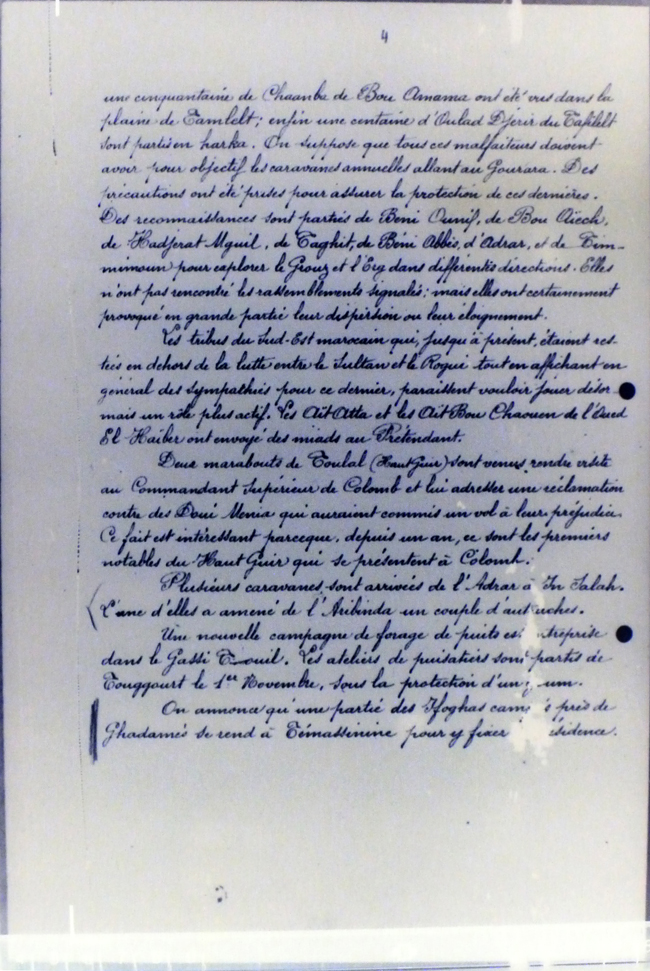 4
une cinquantaine de Chaanba de Bou Amama ont été vus dans la
plaine de Tamlelt; enfin une centaine d'Oulad Djerir du Tafilelt
sont partis en harka. On suppose que tous ces malfaiteurs doivent
avoir pour objectif les caravanes annuelles allant au Gourara. Des
précautions ont été prises pour assurer la protection de ces dernières.
Des reconnaissances sont parties de Béni Ounif, de Bou Aïech,
de Hadjerat-Mguil, de Taghit, de Béni Abbès, d'Adrar, et de Tim-
mimoun pour explorer le Grouz et l'Erg dans différentes directions. Elles
n'ont pas rencontré les rassemblements signalés; mais elles ont certainement
provoqué en grande partie leur dispersion ou leur éloignement.
Les tribus du Sud-Est marocain qui, jusqu'à présent, étaient res-
tées en dehors de la lutte entre le Sultan et le Rogui tout en affichant en
général des sympathies pour ce dernier, paraissent vouloir jouer désor-
mais un rôle plus actif. Les Aït Atta et les Aït Bou Chaouen de l'Oued
El Haiber ont envoyé des miads au Prétendant.
Deux marabouts de Toulal (Haut Guir) sont venus rendre visite
au Commandant Supérieur de Colomb et lui adresser une réclamation
contre des Doui Menia qui auraient commis un vol à leur préjudice.
Ce fait est intéressant parceque, depuis un an, ce sont les premiers
notables du Haut Guir qui se présentent à Colomb.
Plusieurs caravanes sont arrivées de l'Adrar à In Salah.
L'une d'elles a amené de l'Aribinda un couple d'autruches.
Une nouvelle campagne de forage de puits est
dans le Gassi Touil. Les ateliers de puisatiers sont partis de
Touggourt le 1er Novembre, sous la protection d'un
On annonce qu'une partie des Ifoghas près de
Ghadamès se rend à Témassinine pour y fixer